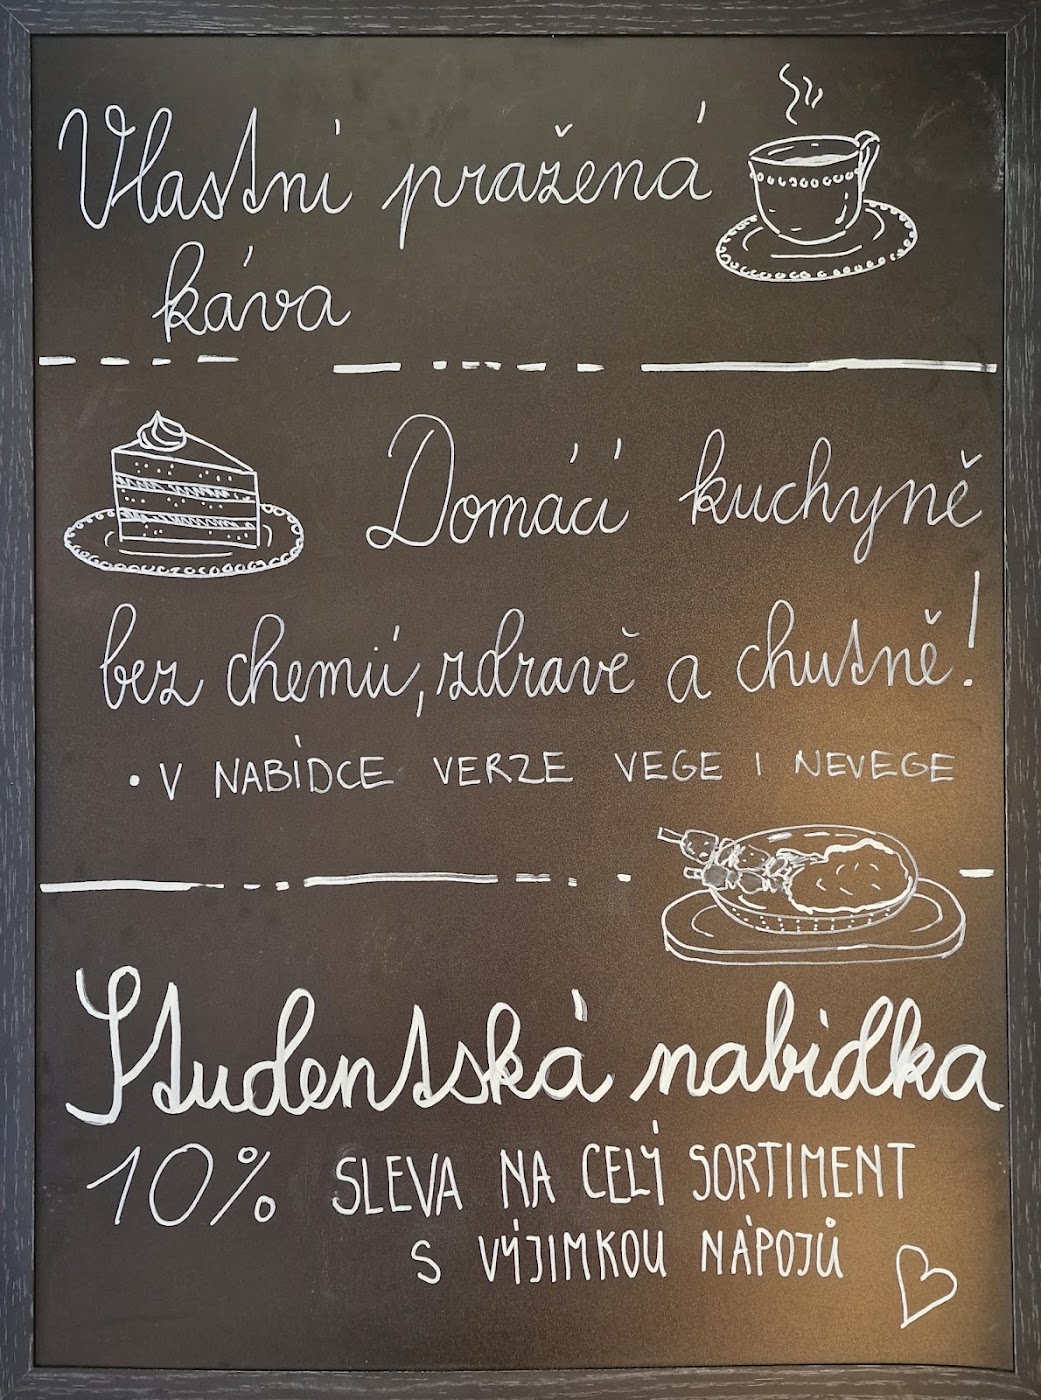 Vlastní pražená
káva
Domácí kuchyně
bez chemií, zdravě a chutně!
• V NABÍDCE VERZE VEGE I NEVEGE
Studentská nabídka
10% SLEVA NA CELÝ SORTIMENT
S VÝJIMKOU NÁPOJŮ